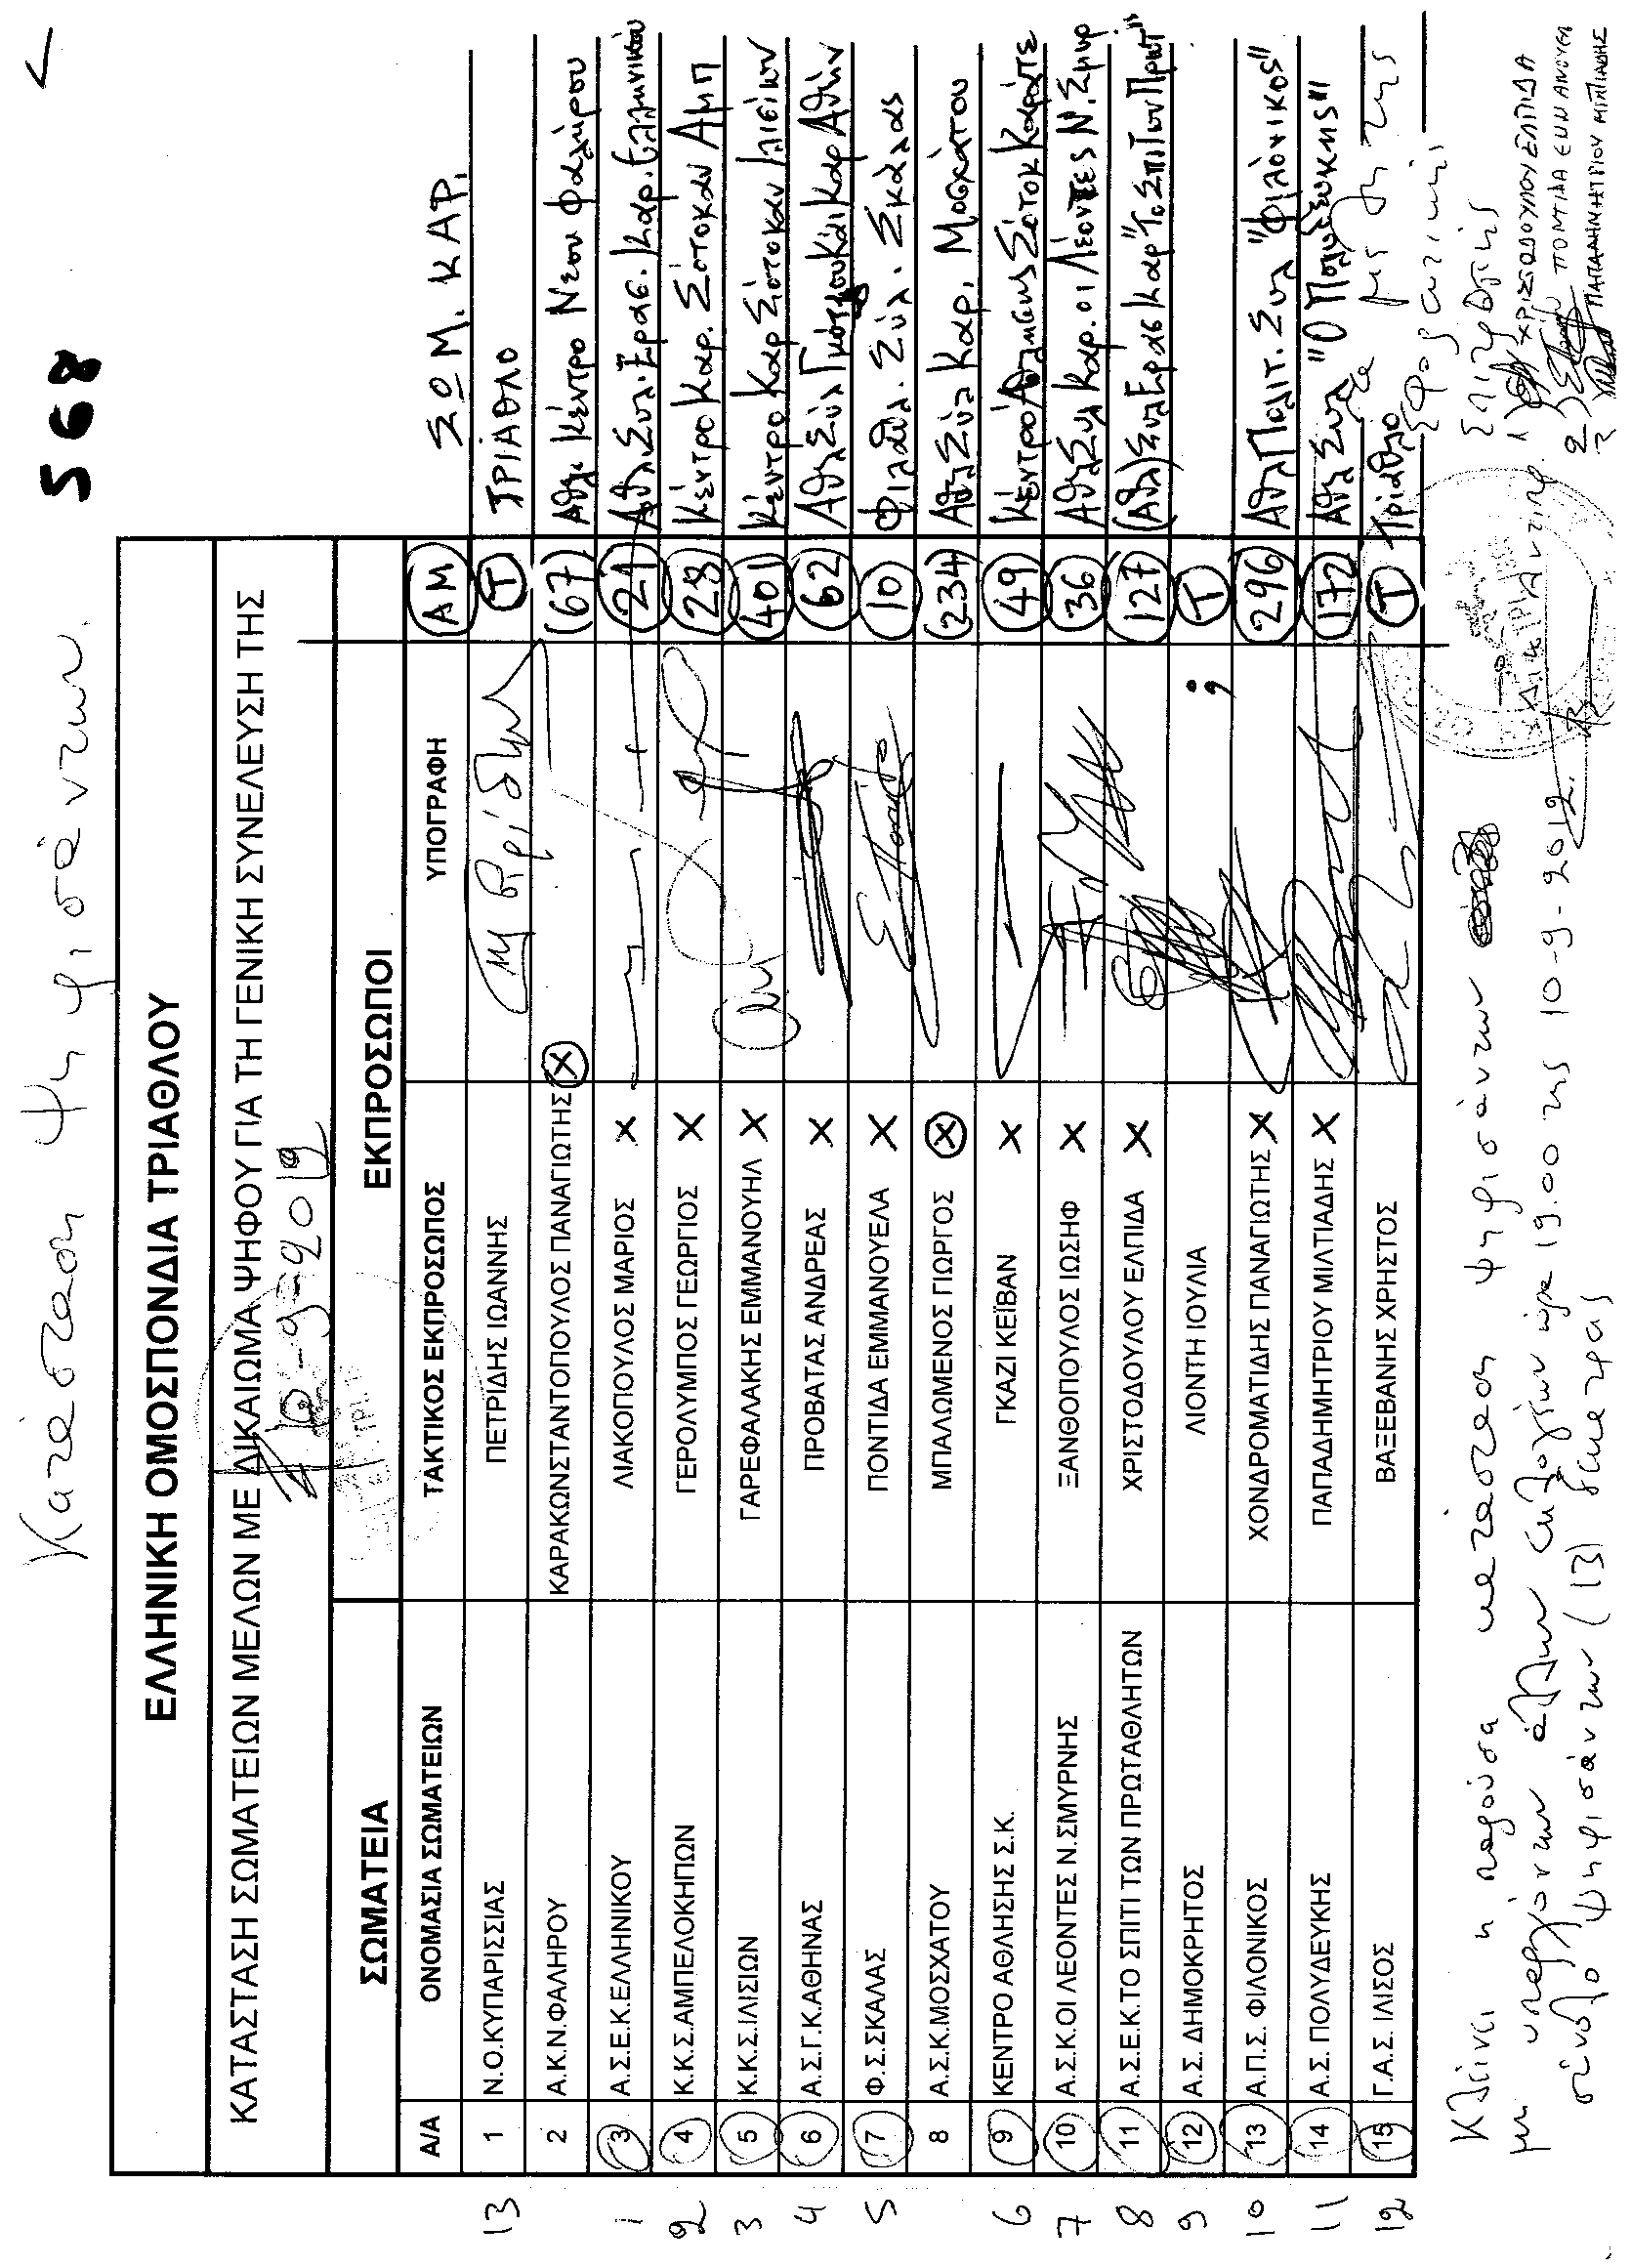 568
Κατάσταση Ψηφισάντων.
ΕΛΛΗΝΙΚΗ ΟΜΟΣΠΟΝΔΙΑ ΤΡΙΑΘΛΟΥ
ΚΑΤΑΣΤΑΣΗ ΣΩΜΑΤΕΙΩΝ ΜΕΛΩΝ ΜΕ ΔΙΚΑΙΩΜΑ ΨΗΦΟΥ ΓΙΑ ΤΗ ΓΕΝΙΚΗ ΣΥΝΕΛΕΥΣΗ ΤΗΣ
10-9-2019
ΣΩΜΑΤΕΙΑ ΕΚΠΡΟΣΩΠΟΙ
Α/Α ΟΝΟΜΑΣΙΑ ΣΩΜΑΤΕΙΩΝ ΤΑΚΤΙΚΟΣ ΕΚΠΡΟΣΩΠΟΣ ΥΠΟΓΡΑΦΗ ΑΜ Μ. ΚΑΡ.
13 1 Ν.Ο.ΚΥΠΑΡΙΣΣΙΑΣ ΠΕΤΡΙΔΗΣ ΙΩΑΝΝΗΣ Τ ΤΡΙΑΘΛΟ
2 Α.Κ.Ν.ΦΑΛΗΡΟΥ ΚΑΡΑΚΩΝΣΤΑΝΤΟΠΟΥΛΟΣ ΠΑΝΑΓΙΩΤΗΣ X 67 Αθλ Κέντρο Νεου Φαλήρου
1 3 Α.Σ.Ε.Κ.ΕΛΛΗΝΙΚΟΥ ΛΙΑΚΟΠΟΥΛΟΣ ΜΑΡΙΟΣ X 21 Αθλ Συλ. Ερασ. Καρ. Ελληνικού
2 4 Κ.Κ.Σ.ΑΜΠΕΛΟΚΗΠΩΝ ΓΕΡΟΛΥΜΠΟΣ ΓΕΩΡΓΙΟΣ X 28 Κέντρο Καρ. Σοτοκαν Αμπ
3 5 Κ.Κ.Σ.ΙΛΙΣΙΩΝ ΓΑΡΕΦΑΛΑΚΗΣ ΕΜΜΑΝΟΥΗΛ X 401 Κέντρο Καρ Σοτοκαν Ιλισίων
4 6 Α.Σ.Γ.Κ.ΑΘΗΝΑΣ ΠΡΟΒΑΤΑΣ ΑΝΔΡΕΑΣ X 62 Αθλ Συλ Καρ Αθην
5 7 Φ.Σ.ΣΚΑΛΑΣ ΠΟΝΤΙΔΑ ΕΜΜΑΝΟΥΕΛΑ X 10 Φιλαθλ. Συλ. Σκάλας
8 Α.Σ.Κ.ΜΟΣΧΑΤΟΥ ΜΠΑΛΩΜΕΝΟΣ ΓΙΩΡΓΟΣ X 234 Αθλ Συλ Καρ. Μοσχάτου
6 9 ΚΕΝΤΡΟ ΑΘΛΗΣΗΣ Σ.Κ. ΓΚΑΖΙ ΚΕΪΒΑΝ X 49 Κέντρο Άθλησης Σοτοκ Καράτε
7 10 Α.Σ.Κ.ΟΙ ΛΕΟΝΤΕΣ Ν.ΣΜΥΡΝΗΣ ΞΑΝΘΟΠΟΥΛΟΣ ΙΩΣΗΦ X 36 Αθλ Συλ Καρ. οι Λέοντες Ν. Σμυρ
8 11 Α.Σ.Ε.Κ.ΤΟ ΣΠΙΤΙ ΤΩΝ ΠΡΩΤΑΘΛΗΤΩΝ ΧΡΙΣΤΟΔΟΥΛΟΥ ΕΛΠΙΔΑ X 127 (Αθλ) Συλ Ερασ Καρ "Το Σπίτι των Πρωτ"
9 12 Α.Σ. ΔΗΜΟΚΡΗΤΟΣ ΛΙΟΝΤΗ ΙΟΥΛΙΑ ; Τ
10 13 Α.Π.Σ. ΦΙΛΟΝΙΚΟΣ ΧΟΝΔΡΟΜΑΤΙΔΗΣ ΠΑΝΑΓΙΩΤΗΣ X 296 Αθλ Πολιτ. Συλ "Φιλόνικος"
11 14 Α.Σ. ΠΟΛΥΔΕΥΚΗΣ ΠΑΠΑΔΗΜΗΤΡΙΟΥ ΜΙΛΤΙΑΔΗΣ X 172 Αθλ Συλ "Ο Πολυδεύκης"
12 15 Γ.Α.Σ ΙΛΙΣΟΣ ΒΑΞΕΒΑΝΗΣ ΧΡΗΣΤΟΣ Τ Τρίαθλο
Κλείνει η παρούσα κατάσταση ψηφισάντων
μη υπαρχόντων άλλων συλλόγων ώρα 19.00 της 10-9-2019.
σύνολο ψηφισάντων (13) δεκατρας
με τη της
Εφορευτικής
Επιτροπής
1) ΧΡΙΣΤΟΔΟΥΛΟΥ ΕΛΠΙΔΑ
2) ΠΟΝΤΙΔΑ ΕΜΜΑΝΟΥΕΛΑ
3 ΠΑΠΑΔΗΜΗΤΡΙΟΥ ΜΙΛΤΙΑΔΗΣ